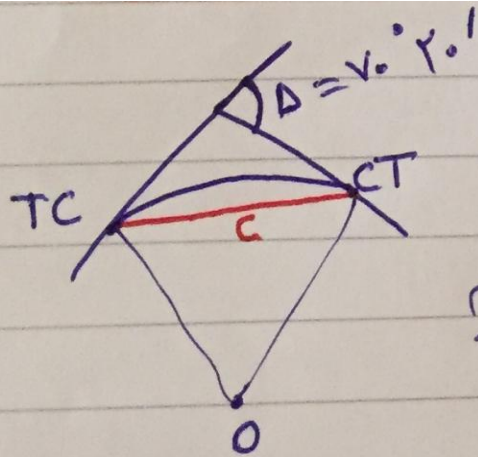 Δ = ۷۰° ۲۰'
TC
CT
C
O